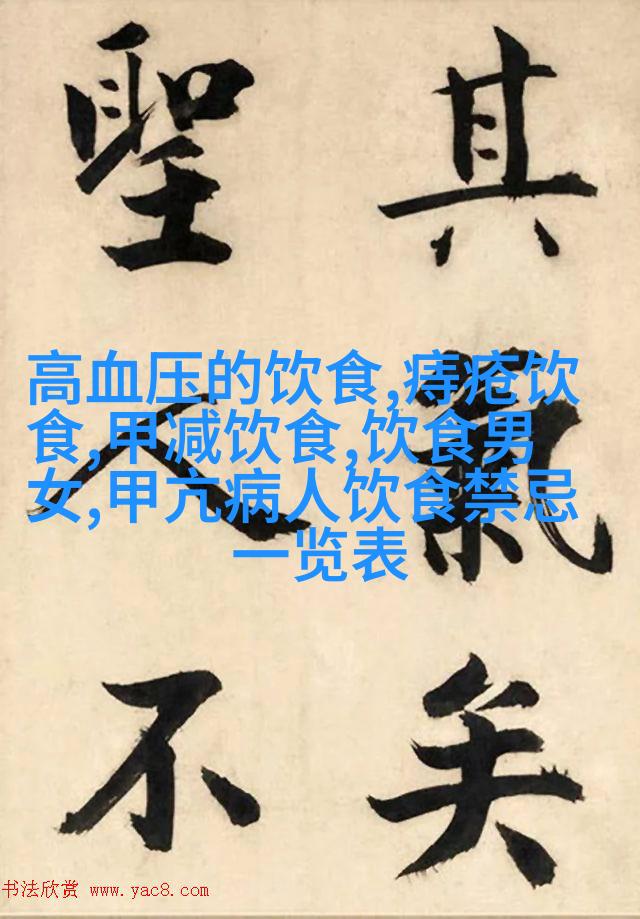 其氣矣
聖人不
高血压的饮食,痔疮饮
食,甲减饮食,饮食男
女,甲亢病人饮食禁忌
一览表
书法欣赏 www.yac8.com